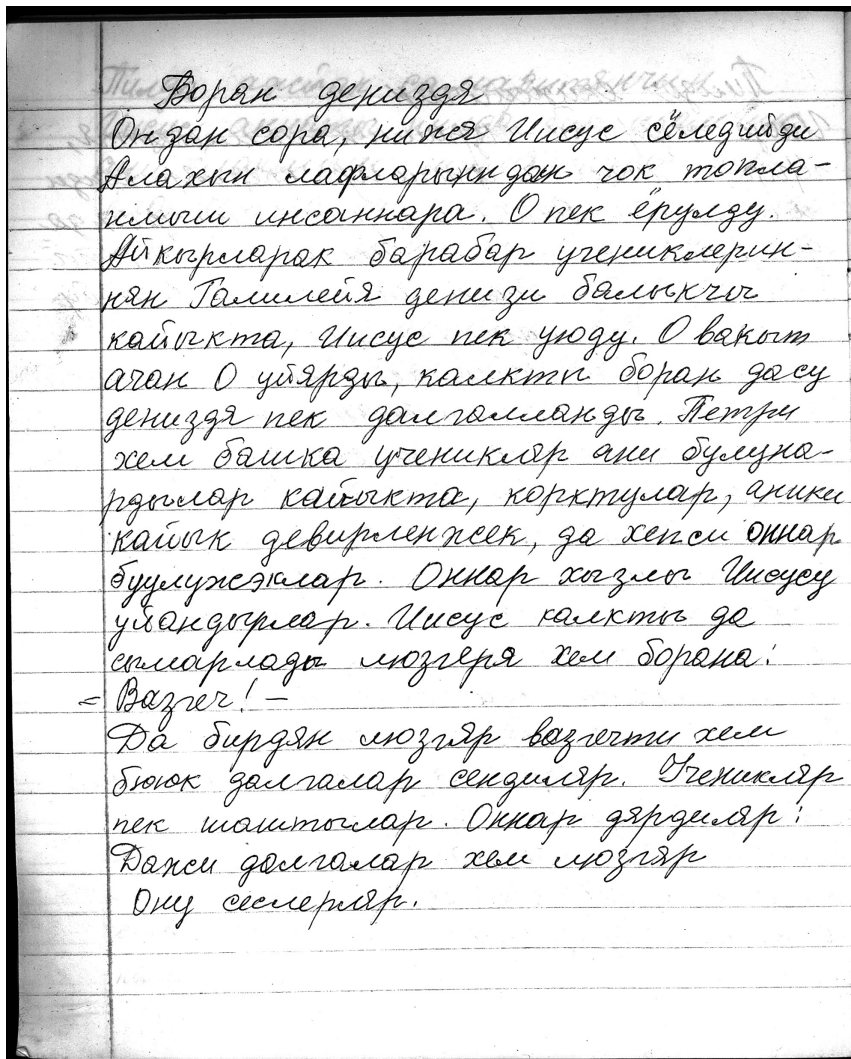 Боран дениздя
Ондан сора, нижя Иисус сёледийди
Алахын лафларынндан чок топла-
нмыш инсаннара. О пек ёрулду.
Айкырларак барабар учениклерин-
нян Галилейя денизи балыкчы
кайыкта, Иисус пек уюду. О вакыт
ачан О уйярды, калкты боран да су
дениздя пек далгалланды. Петри
хем башка ученикляр ани булуна-
рдылар кайыкта, корктулар, аники
кайык девирленжек, да хепси оннар
буулужэклар. Оннар хызлы Иисусу
уйандырлар. Иисус калкты да
сымарлады люзгеря хем борана:
= Вазгеч! —
Да бирдян люзгяр вазгечти хем
бююк далгалар сендиляр. Ученикляр
пек шаштылар. Оннар дярдиляр:
Дажи далгалар хем люзгяр
Ону сеслерляр.